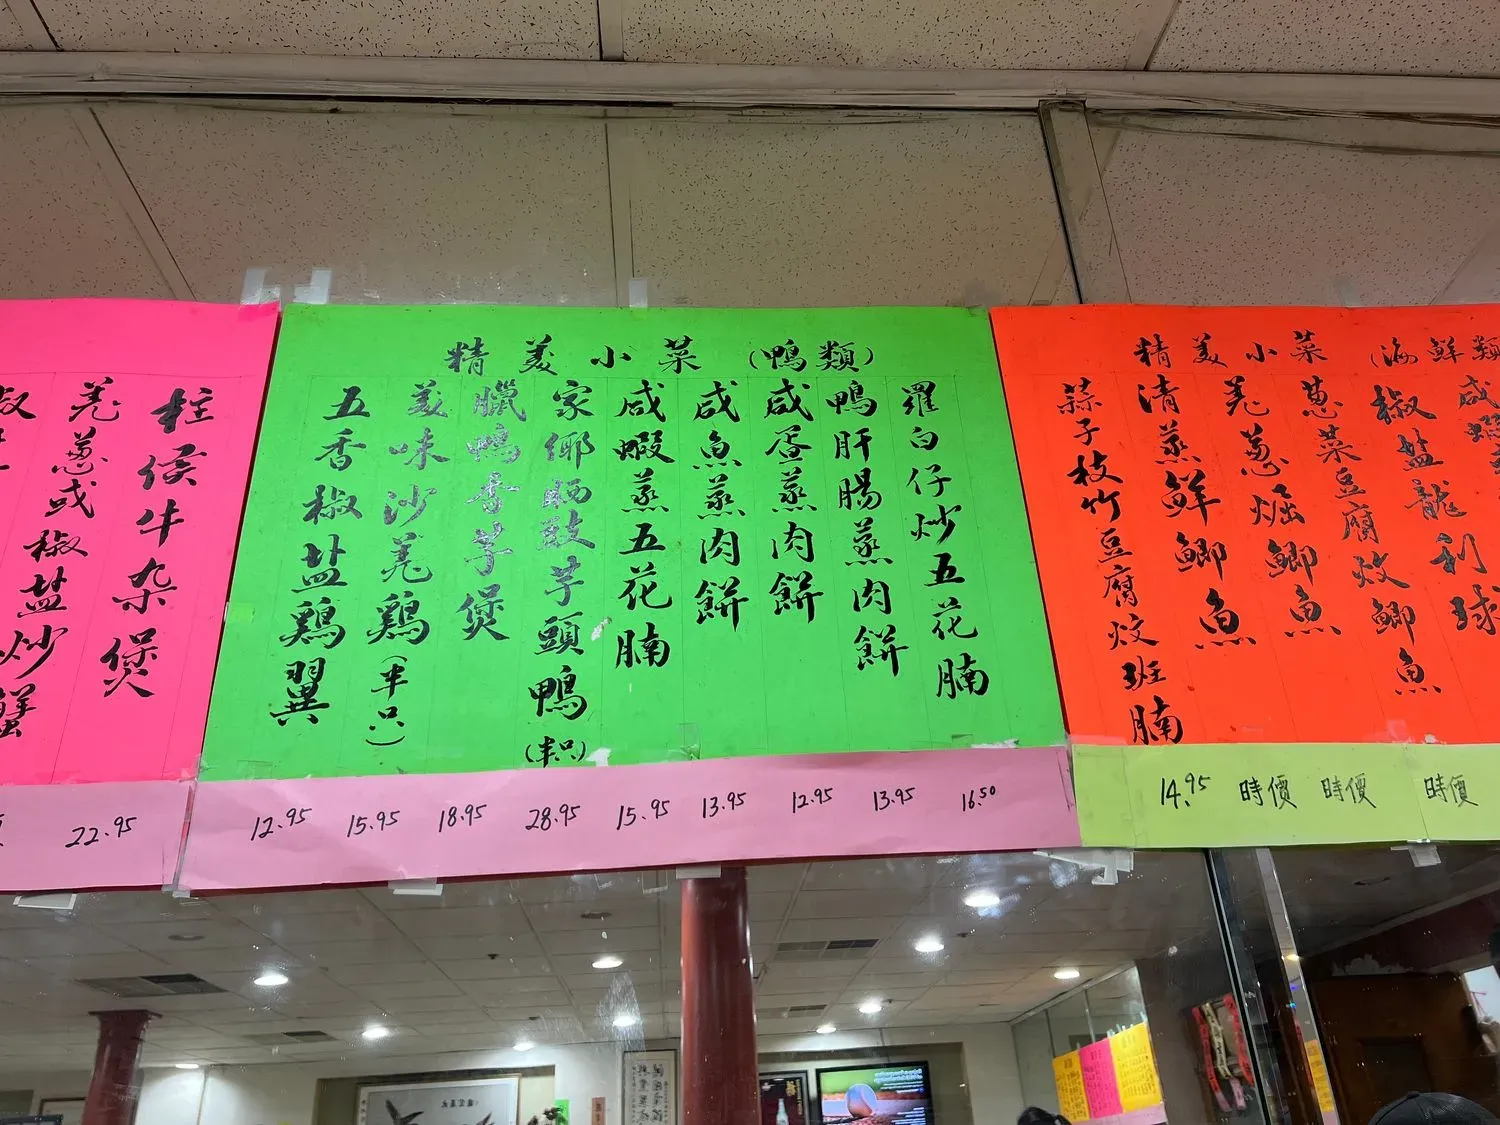 羌葱或椒盐炒蟹
柱侯牛杂煲
22.95
精美小菜（鴨類）
五香椒盐鷄翼
美味沙羌鷄（半只）
臘鴨香芋煲
家鄉晒豉芋頭鴨（半只）
咸蝦蒸五花腩
咸魚蒸肉餅
咸蛋蒸肉餅
鴨肝腸蒸肉餅
羅白仔炒五花腩
12.95 15.95 18.95 28.95 15.95 13.95 12.95 13.95 16.50
精美小菜（海鮮類
蒜子枝竹豆腐炆班腩
清蒸鮮鯽魚
羌葱焗鯽魚
葱菜豆腐炆鯽魚
椒盐龍利球
咸蝦
14.95 時價 時價 時價